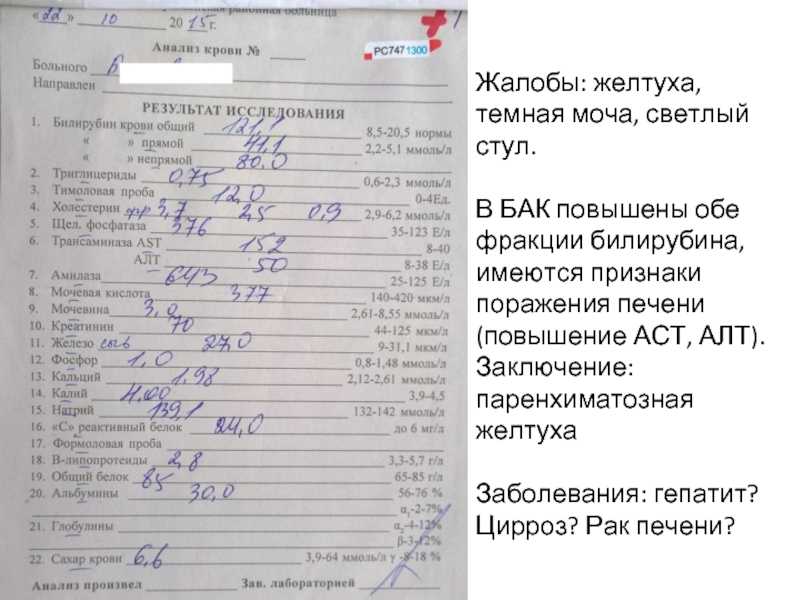 районная больница
«22» 10 2015 г.
Анализ крови №
РС7471300
Больного
Направлен
РЕЗУЛЬТАТ ИССЛЕДОВАНИЯ
1. Билирубин крови общий 121,1 8,5-20,5 нормы
« » прямой 41,1 2,2-5,1 ммоль/л
« » непрямой 80,0
2. Триглицериды 0,75 0,6-2,3 ммоль/л
3. Тимоловая проба 12,0 0-4Ед.
4. Холестерин 3,7 2,5 0,9 2,9-6,2 ммоль/л
5. Щел. фосфатаза 376 35-123 Е/л
6. Трансаминаза AST 152 8-40
АЛТ 50 8-38 Е/л
7. Амилаза 643 25-125 Е/л
8. Мочевая кислота 377 140-420 мкм/л
9. Мочевина 3,0 2,61-8,55 ммоль/л
10. Креатинин 70 44-125 мкм/л
11. Железо сыв 27,0 9-31,1 мкм/л
12. Фосфор 1,0 0,8-1,48 ммоль/л
13. Кальций 1,98 2,12-2,61 ммоль/л
14. Калий 4,00 3,9-4,5
15. Натрий 139,1 132-142 ммоль/л
16. «С» реактивный белок 24,0 до 6 мг/л
17. Формоловая проба
18. В-липопротеиды 2,8 3,3-5,7 г/л
19. Общий белок 85 65-85 г/л
20. Альбумины 30,0 56-76 %
α₁-2-7%
21. Глобулины α₂-4-12%
β-3-12%
22. Сахар крови 6,6 3,9-64 ммоль/л γ -8-18 %
Анализ произвел Зав. лабораторией
Жалобы: желтуха,
темная моча, светлый
стул.
В БАК повышены обе
фракции билирубина,
имеются признаки
поражения печени
(повышение АСТ, АЛТ).
Заключение:
паренхиматозная
желтуха
Заболевания: гепатит?
Цирроз? Рак печени?